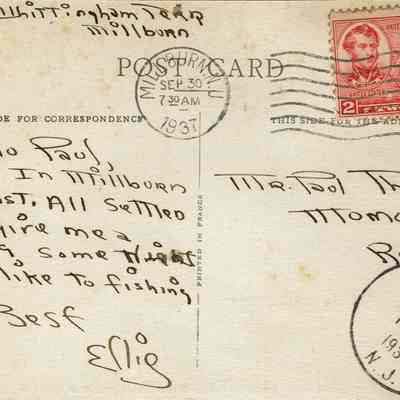 Whittingham Terr
Millburn
POST CARD
MILLBURN N.J.
SEP 30
7 30 AM
1937
2
DE FOR CORRESPONDENCE
THIS SIDE FOR THE AD
lo Paul,
In Millburn
st. All Settled
give me a
Some Night
like to fishing
Best
PRINTED IN FRANCE
Mr. Paul Th
Mom
193
N.J.